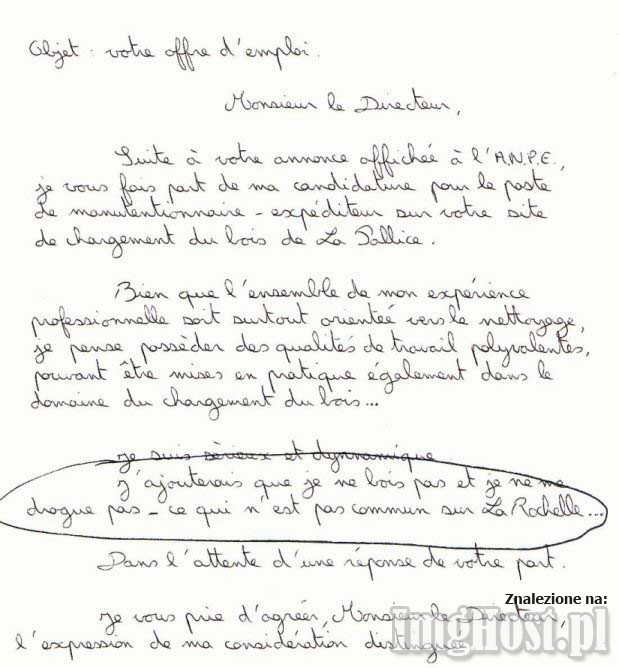 Objet : votre offre d'emploi.
Monsieur le Directeur,
Suite à votre annonce affichée à l'A.N.P.E.,
je vous fais part de ma candidature pour le poste
de manutentionnaire - expéditeur sur votre site
de chargement du bois de La Pallice.
Bien que l'ensemble de mon expérience
professionnelle soit surtout orientée vers le nettoyage,
je pense possèder des qualités de travail polyvalentes,
pouvant être mises en pratique également dans le
domaine du chargement du bois...
je suis sèrieux et dynnamique
J'ajouterais que je ne bois pas et je ne me
drogue pas - ce qui n'est pas commun sur La Rochelle...
Dans l'attente d'une réponse de votre part.
Znalezione na:
Je vous prie d'agréer, Monsieur le Directeur,
ImgHost.pl
l'expression de ma considération distinguée